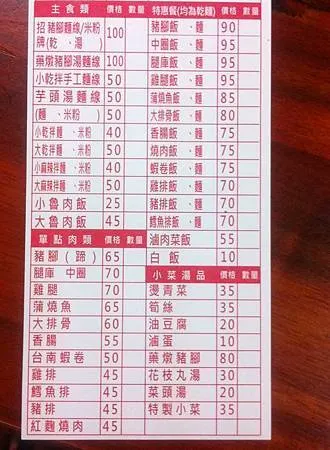 主食類 價格 數量
招 豬腳麵線/米粉 100
牌(乾 、湯)
藥燉豬腳湯麵線 100
小乾拌手工麵線 50
芋頭湯麵線 50
(麵 、米粉)
小乾拌麵 、米粉 40
大乾拌麵 、米粉 50
小麻辣拌麵 、米粉 40
大麻辣拌麵 、米粉 50
小魯肉飯 25
大魯肉飯 45
單點肉類 價格 數量
豬腳(蹄) 65
腿庫 中圈 70
雞腿 70
蒲燒魚 65
大排骨 60
香腸 55
台南蝦卷 50
雞排 45
鱈魚排 45
豬排 45
紅麴燒肉 45
特惠餐(均為乾麵) 價格 數量
豬腳飯 、麵 90
中圈飯 、麵 95
腿庫飯 、麵 95
雞腿飯 、麵 95
蒲燒魚飯 、麵 85
大排骨飯 、麵 80
香腸飯 、麵 75
燒肉飯 、麵 75
蝦卷飯 、麵 70
雞排飯 、麵 75
豬排飯 、麵 75
鱈魚排飯 、麵 70
滷肉菜飯 55
白飯 10
小菜湯品 價格 數量
燙青菜 35
筍絲 35
油豆腐 20
滷蛋 10
藥燉豬腳 80
花枝丸湯 30
菜頭湯 20
特製小菜 35